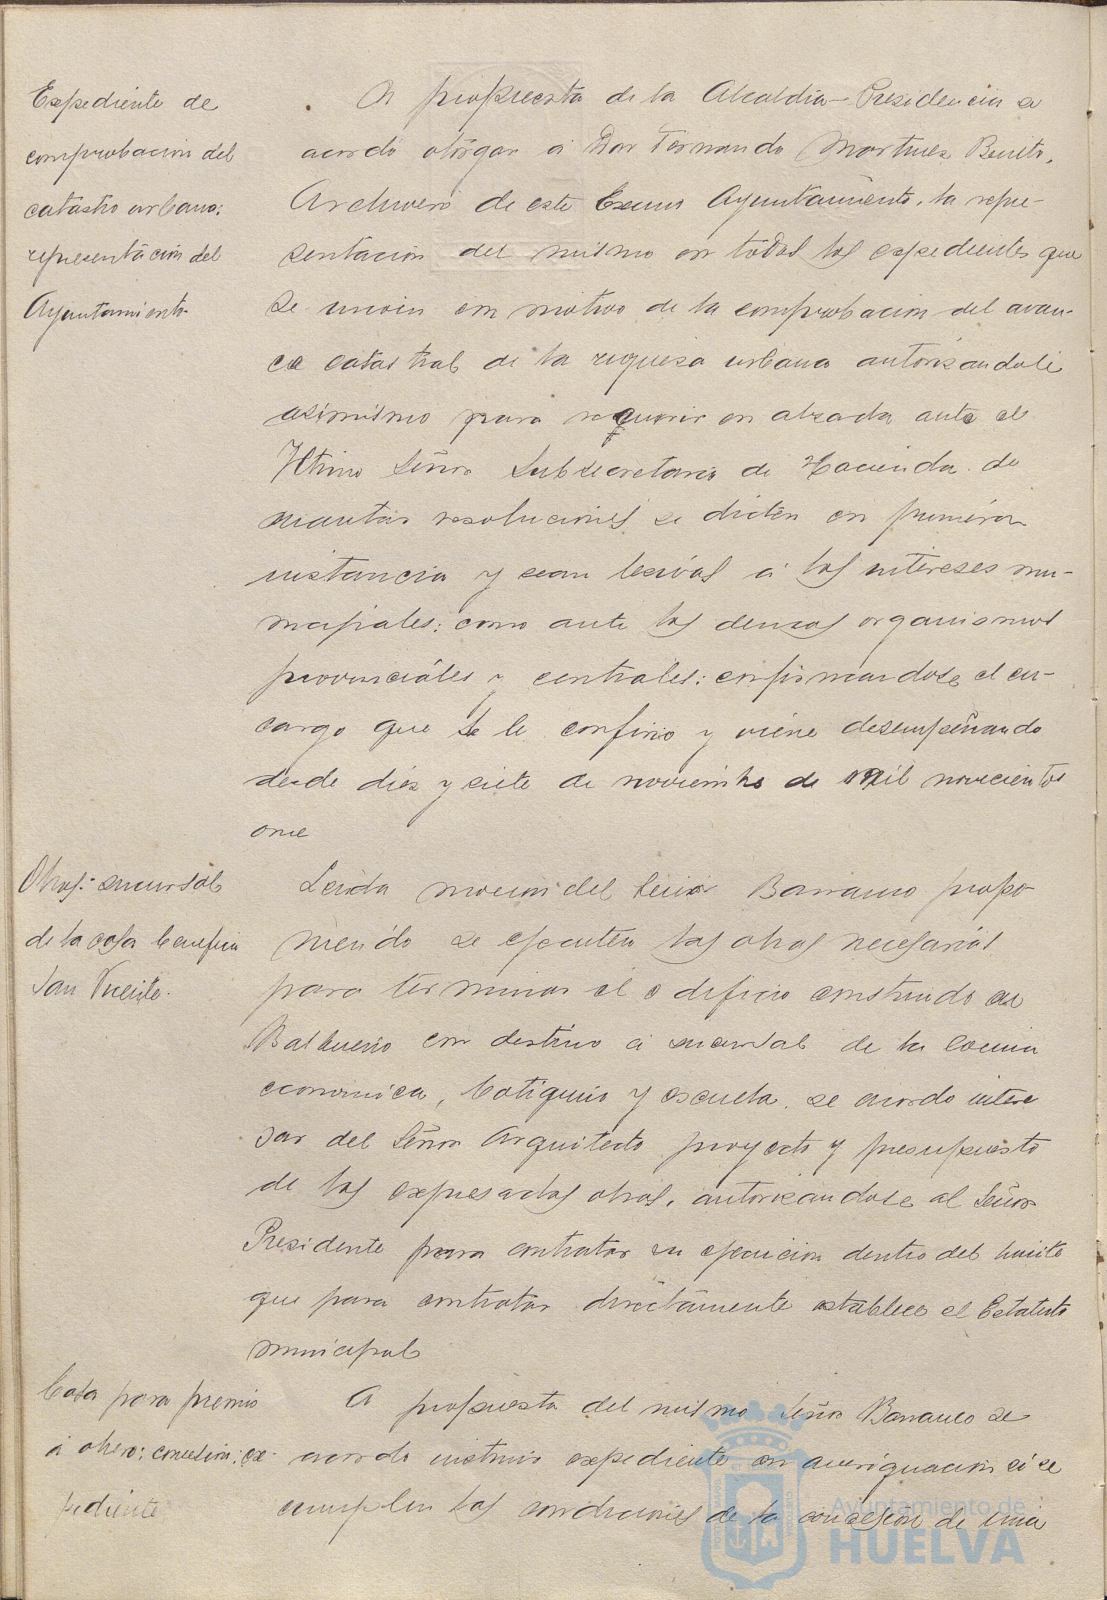 Expediente de
comprobacion del
catastro urbano:
representación del
Ayuntamiento
A propuesta de la Alcaldia-Presidencia se
acordó otorgar a Don Fernando Martinez Benito,
Archivero de este Excmo Ayuntamiento, la repre-
sentacion del mismo en todos los expedientes que
se incoen con motivo de la comprobacion del avan-
ce catastral de la riqueza urbana autorizandole
asimismo para requerir en alzada ante el
Iltmo Señor Subsecretario de Hacienda de
cuantas resoluciones se dicten en primera
instancia y sean lesivas á los intereses mu-
nicipales: como ante los demas organismos
provinciales y centrales: confirmandose el en-
cargo que se le confirio y viene desempeñando
desde diez y siete de noviembre de mil novecientos
once
Obras: sucursal
de la casa benefica
San Vicente.
Leida mocion del Señor Barranco propo-
niendo se ejecuten las obras necesarias
para terminar el edificio construido en
Balbueno con destino a sucursal de la Cocina
economica, botiquin y escuela, se acordo intere
sar del Señor Arquitecto proyecto y presupuesto
de las expresadas obras, autorizandose al Señor
Presidente para contratar su ejecucion dentro del limite
que para contratar directamente establece el Estatuto
municipal
Casa para premio
a obrero: concesion: ex-
pediente
A propuesta del mismo Señor Barranco se
acordo instruir expediente en averiguacion si se
cumplen las condiciones de la concesion de una
Ayuntamiento de
HUELVA